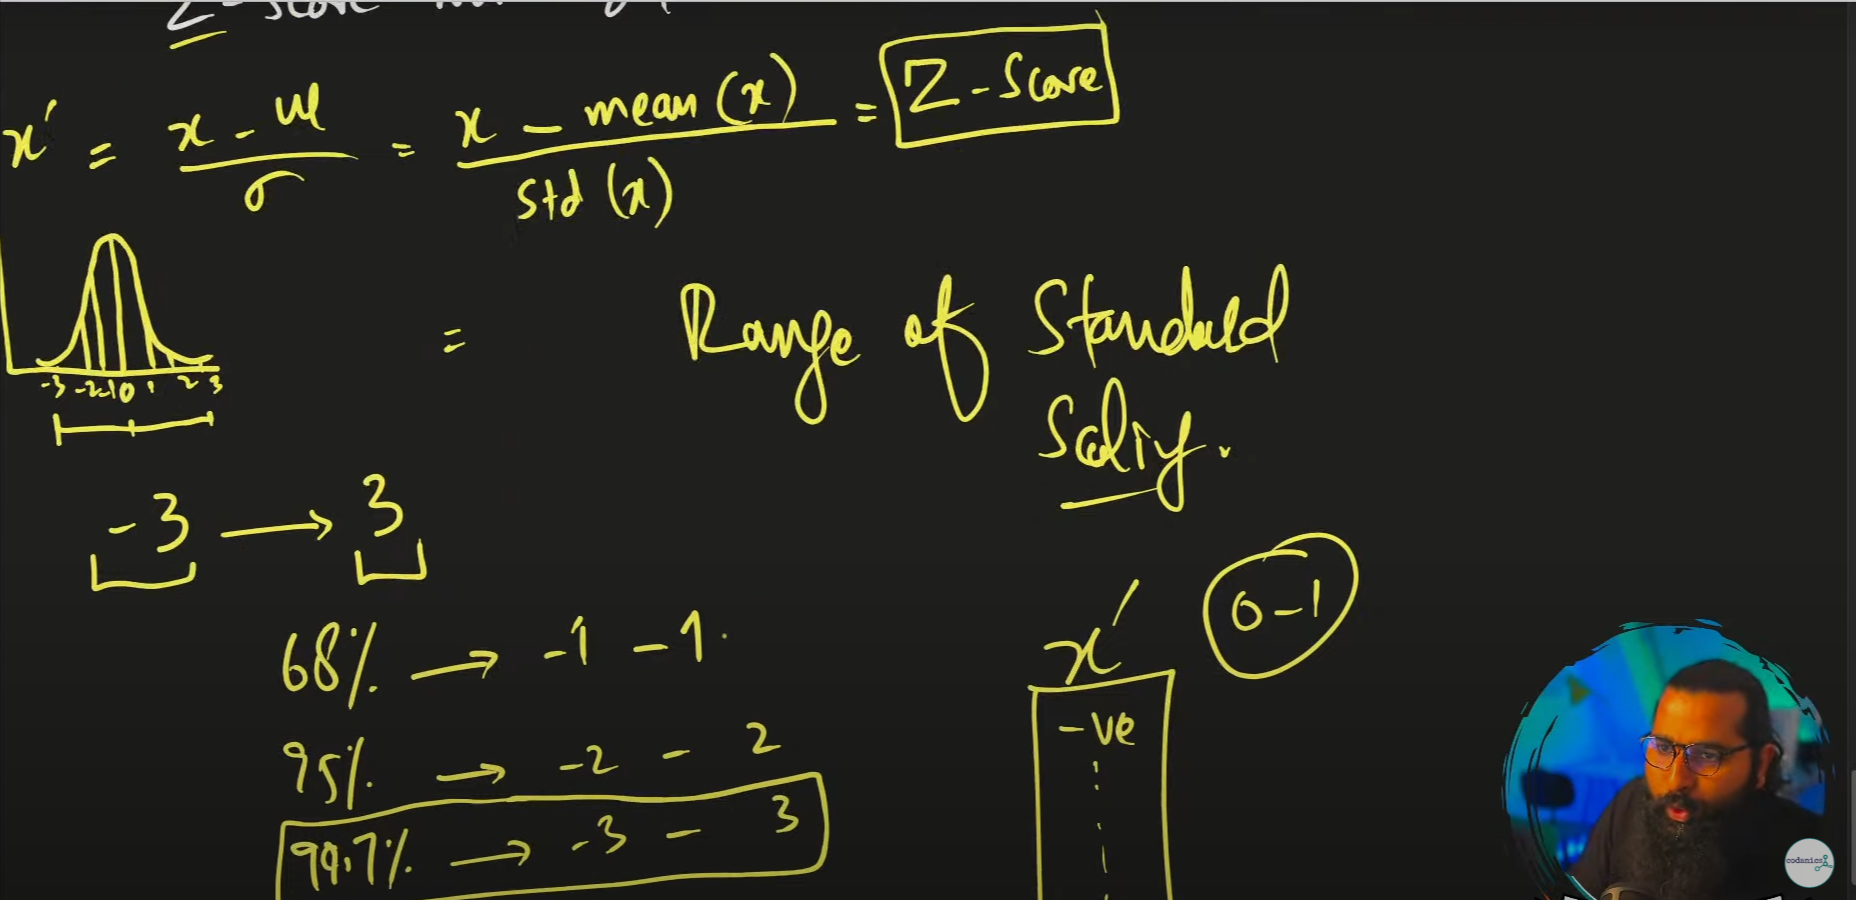 Z-score
x' = x - μ / σ = x - mean(x) / std(x) = Z-Score
-3 -2 -1 0 1 2 3
= Range of Standard
Scaling.
-3 → 3
68% → -1 - 1
x'
0-1
-ve
95% → -2 - 2
99.7% → -3 - 3
codanics